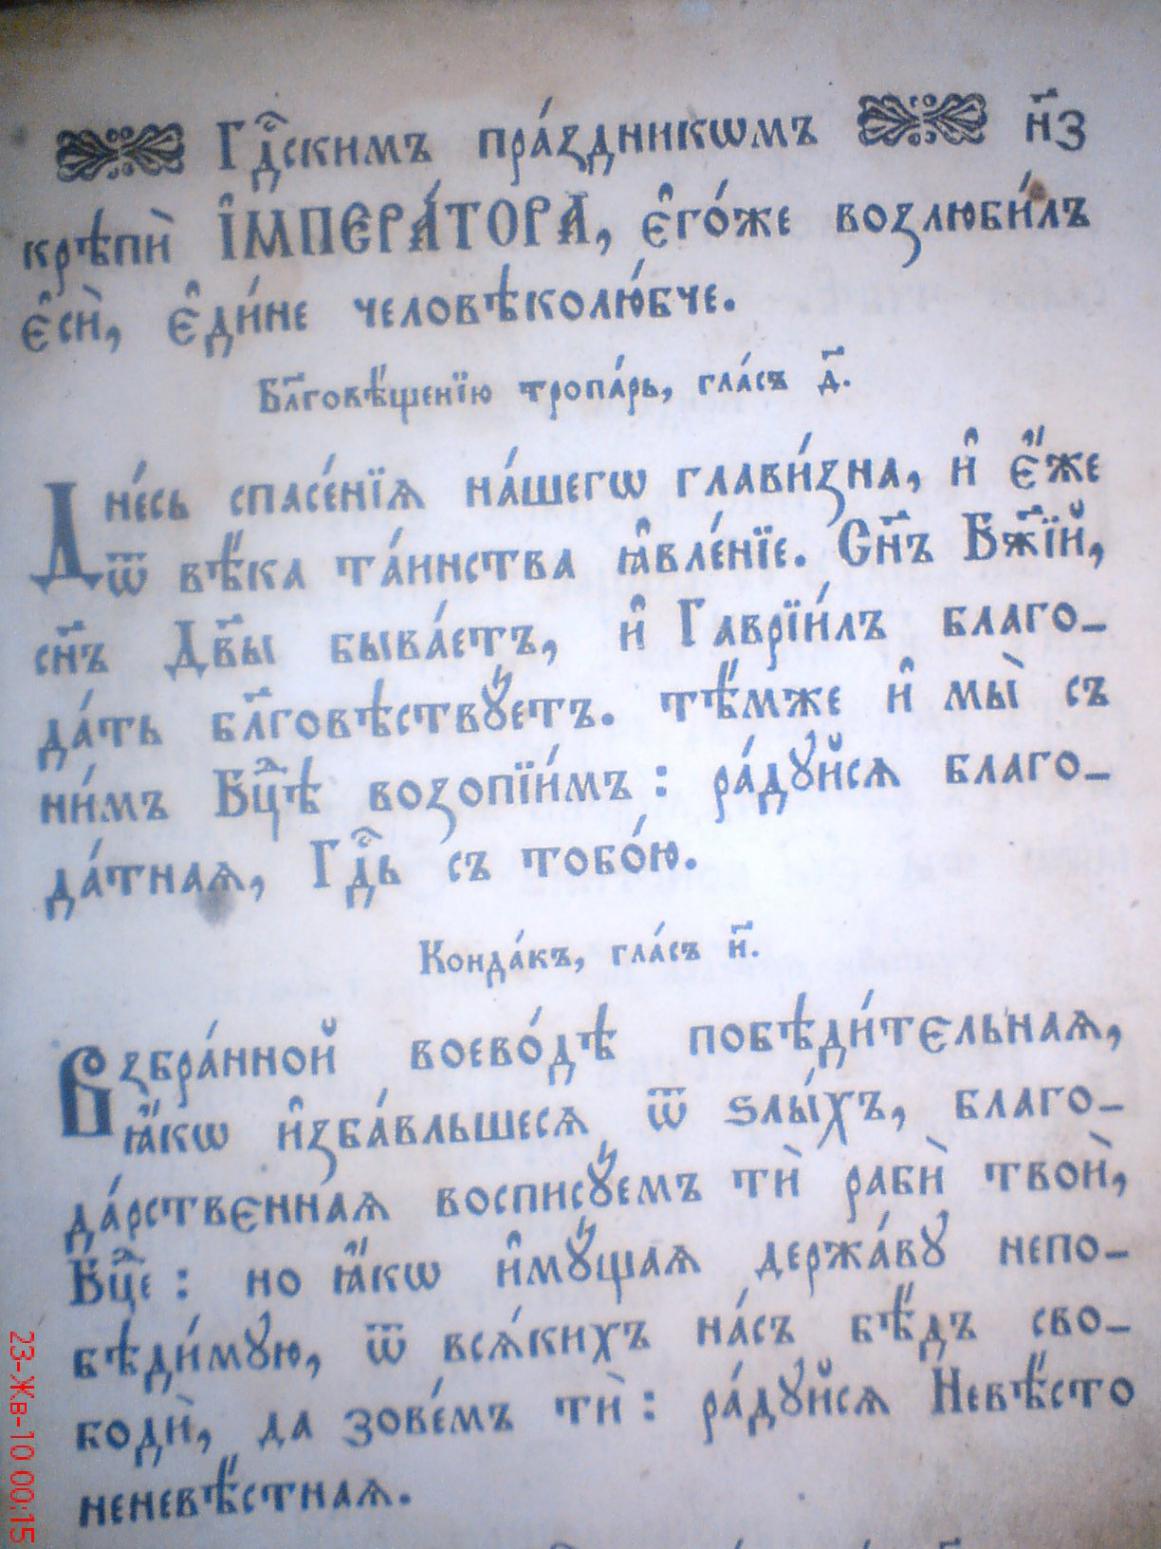 Гдⷭ҇скимъ пра́здникѡмъ н҃з
крѣпѝ І҆МПЕРА́ТОРА, є҆го́же возлюби́лъ
є҆сѝ, є҆ди́не человѣколю́бче.
Бл҃говѣ́щенїю тропа́рь, гла́съ д҃.
Дне́сь спасе́нїѧ на́шегѡ глави́зна, и҆ є҆́же
ѿ вѣ́ка та́инства ꙗ҆вле́нїе. Сн҃ъ Бж҃їй,
сн҃ъ Дв҃ы быва́етъ, и҆ Гаврїи́лъ благо-
да́ть бл҃говѣствꙋ́етъ. тѣ́мже и҆ мы̀ съ
ни́мъ Бцⷣѣ возопїи́мъ: ра́дꙋйсѧ благо-
да́тнаѧ, Гдⷭ҇ь съ тобо́ю.
Конда́къ, гла́съ и҃.
Взбра́нной воево́дѣ побѣди́тєльнаѧ,
ꙗ҆́кѡ и҆зба́вльшесѧ ѿ ѕлы́хъ, благо-
да́рствєннаѧ восписꙋ́емъ тѝ рабѝ твоѝ,
Бцⷣе: но ꙗ҆́кѡ и҆мꙋ́щаѧ держа́вꙋ непо-
бѣди́мꙋю, ѿ всѧ́кихъ на́съ бѣ́дъ сво-
бодѝ, да зове́мъ тѝ: ра́дꙋйсѧ Невѣ́сто
неневѣ́стнаѧ.
23-Жв-10 00:15